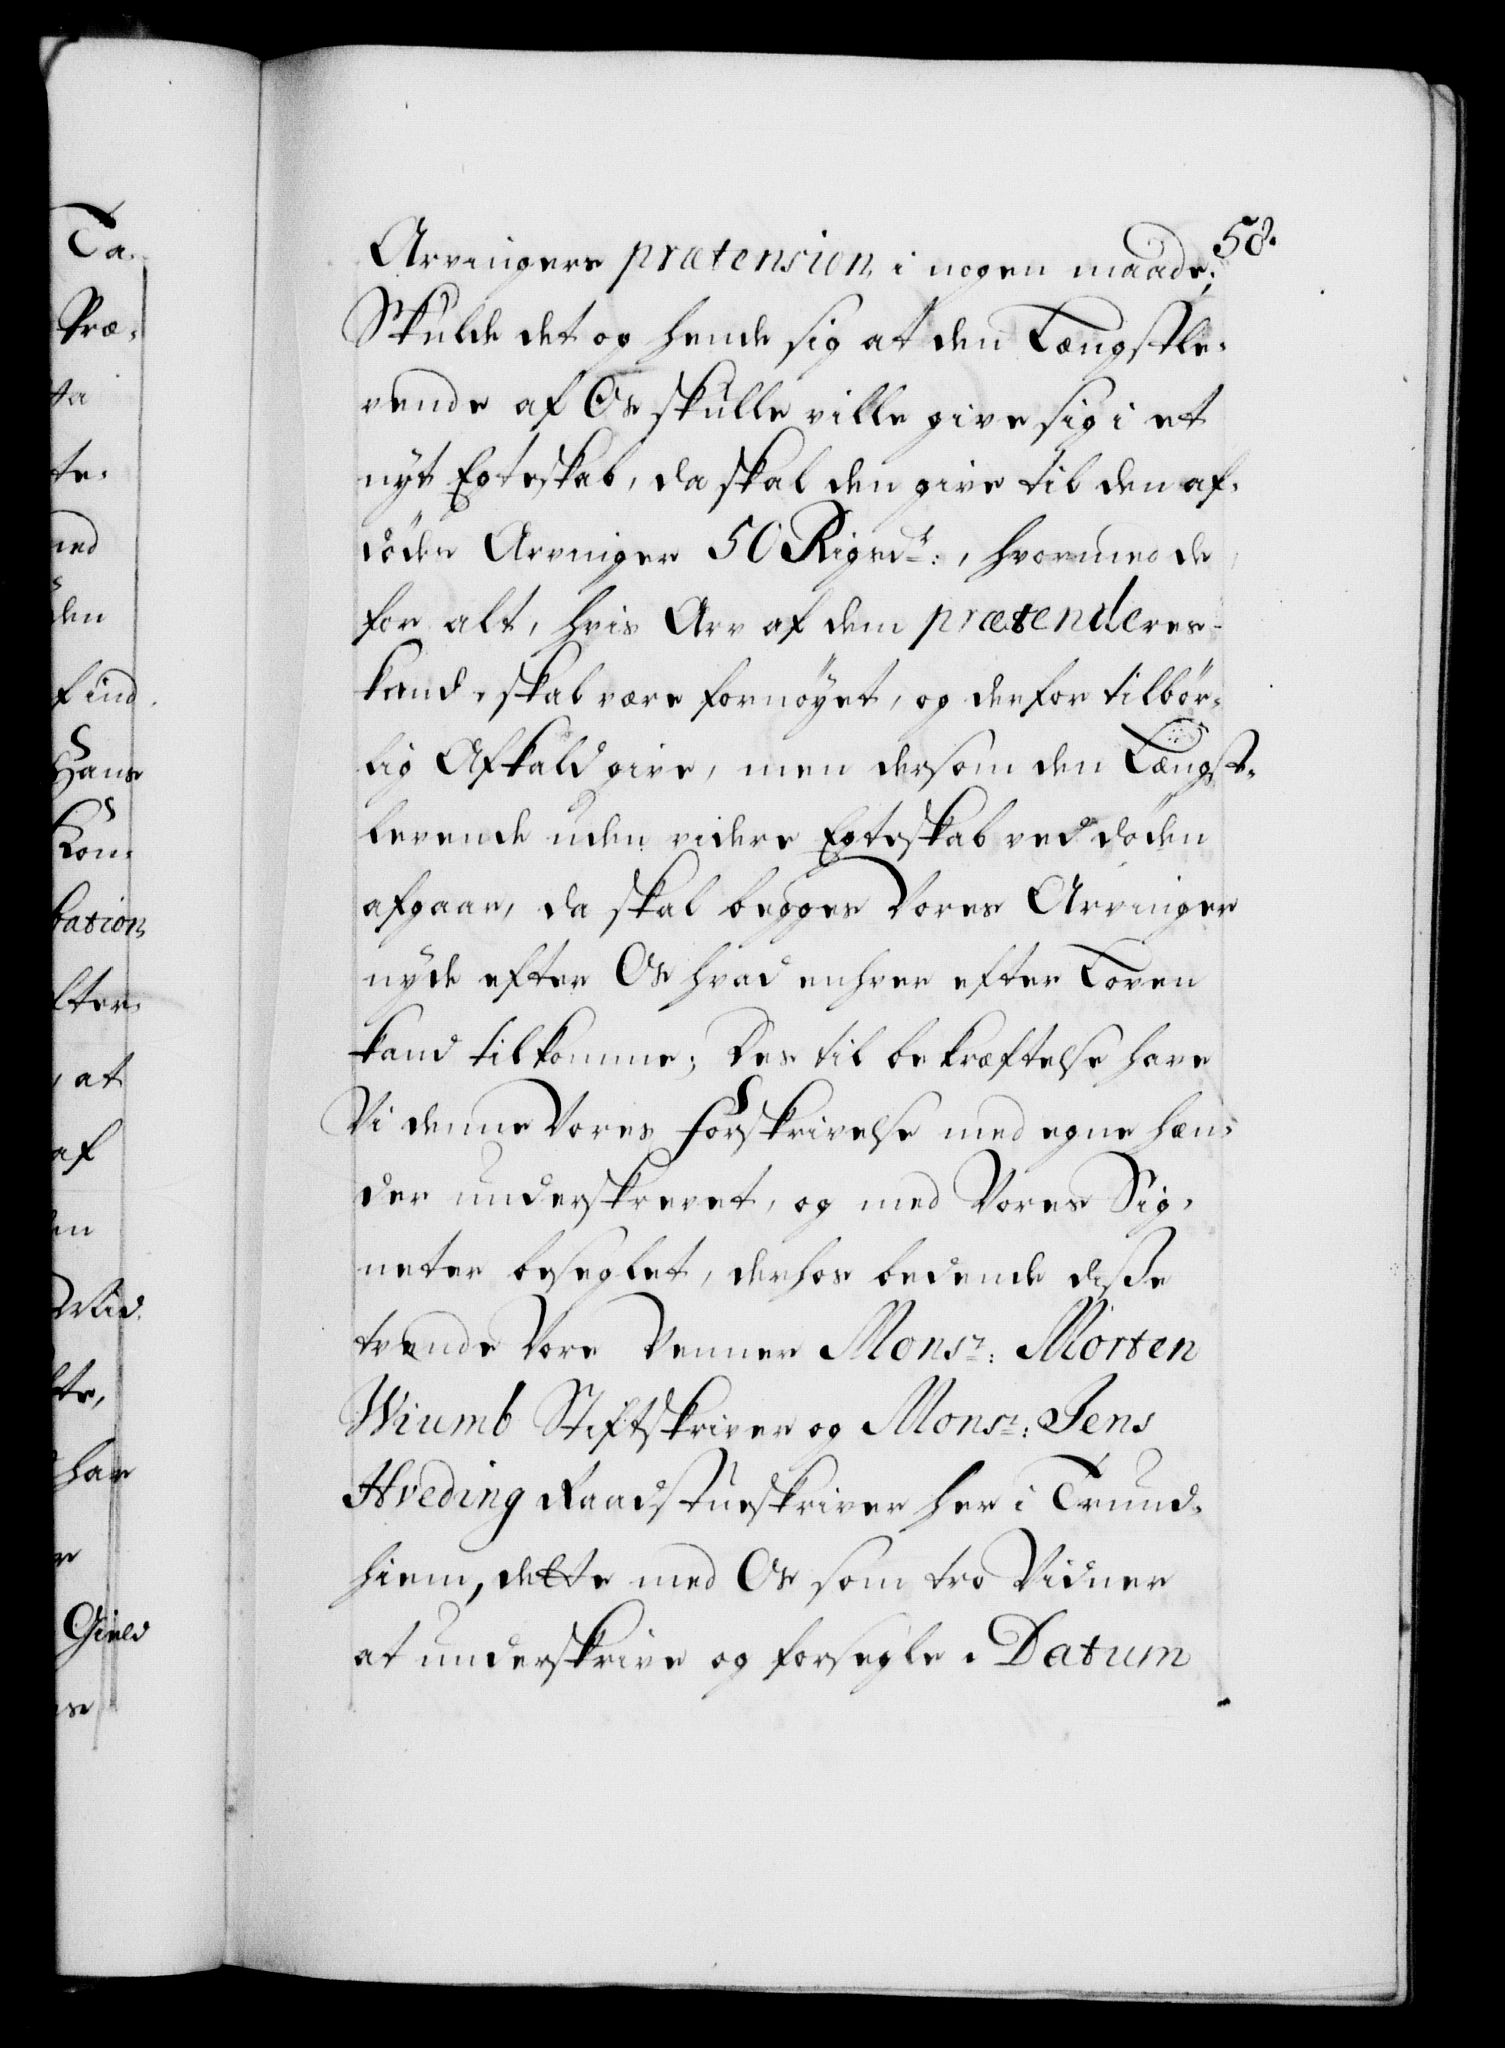 58.
Arvingers prætension i nogen maade;
Skulde det og hende sig at den Længstle-
vende af Os skulle ville give sig i et
nyt Egteskab, da skal den give til den af-
döder Arvinger 50 Rigsdr:, hvormed de
for alt, hvis Arv af dem prætenderes
kand, skal være fornöyet, og derfor tilbör-
lig Afkald give, men dersom den Længst-
levende uden videre Egteskab ved döden
afgaar, da skal begges Vores Arvinger
nyde efter Os hvad enhver efter Loven
kand tilkomme; Des til bekræftelse have
Vi denne Vores Forskrivelse med egne hæn-
der underskrevet, og med Vores Sig-
neter beseglet, derhos bedende disse
tvende Vore Venner Monsr: Morten
Wiumb Stiftskriver og Monsr: Jens
Hveding Raadstueskriver her i Trund-
hiem, dette med Os som tro Vidner
at underskrive og forsegle. Datum